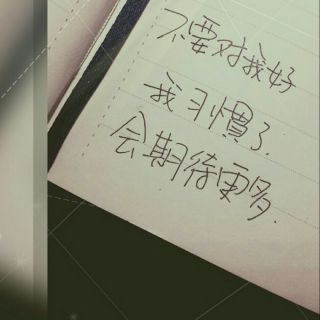 不要对我好
我习惯了.
会期待更多.